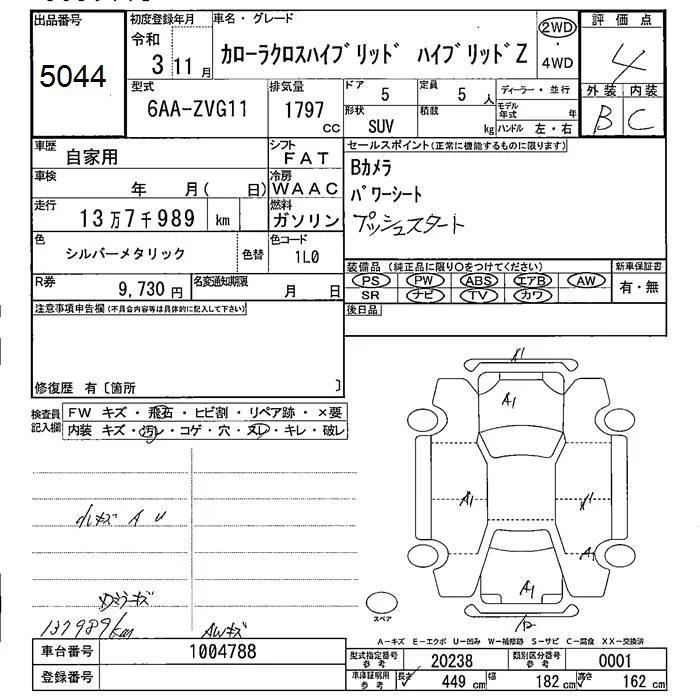 出品番号 初度登録年月 車名・グレード 評価点
5044 令和 3 11月 カローラクロスハイブリッド ハイブリッドZ 2WD ・ 4WD 4
型式 排気量 ドア 定員 ディーラー・並行 外装 内装
6AA-ZVG11 1797 CC 5 5 人 モデル年式 年 B C
形状 SUV 積載 kg ハンドル 左・右
車歴 自家用 シフト FAT セールスポイント(正常に機能するものに限ります)
車検 年 月( 日) 冷房 WAAC Bカメラ
パワーシート
走行 13万7千989 km 燃料 ガソリン プッシュスタート
色 シルバーメタリック 色替 色コード 1L0
装備品(純正品に限り○をつけてください) 新車保証書
R券 9,730円 名変通知期限 月 日 PS PW ABS エアB AW 有・無
SR ナビ TV カワ
注意事項申告欄(不具合内容等は具体的に記入して下さい) 後日品
修復歴 有〔箇所 〕
検査員記入欄 FW キズ・飛石・ヒビ割・リペア跡・×要
内装 キズ・汚レ・コゲ・穴・ヌレ・キレ・破レ
A1
A1
A1
A1
小キズ A U
ミラーキズ
137989km AWキズ
スペア
A-キズ E-エクボ U-凹み W-補修跡 S-サビ C-腐食 XX-交換済
車台番号 1004788 型式指定番号参考 20238 類別区分番号参考 0001
登録番号 車庫証明用参考 長さ 449 cm 幅 182 cm 高さ 162 cm